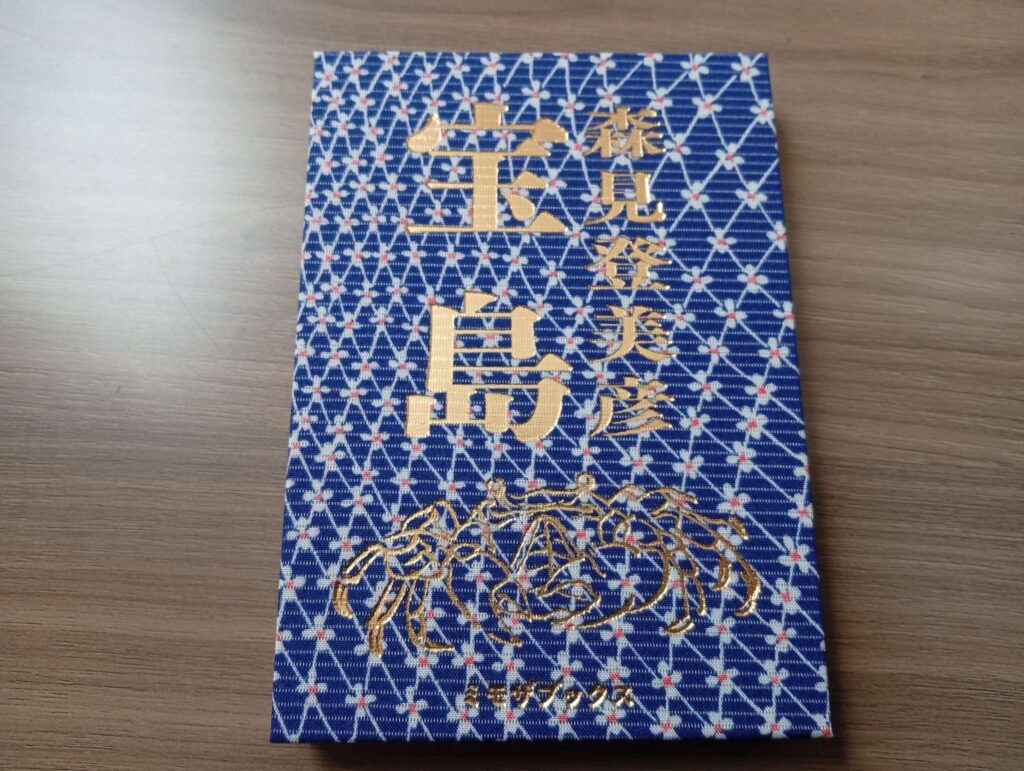 森見登美彦
宝島
ミモザブックス